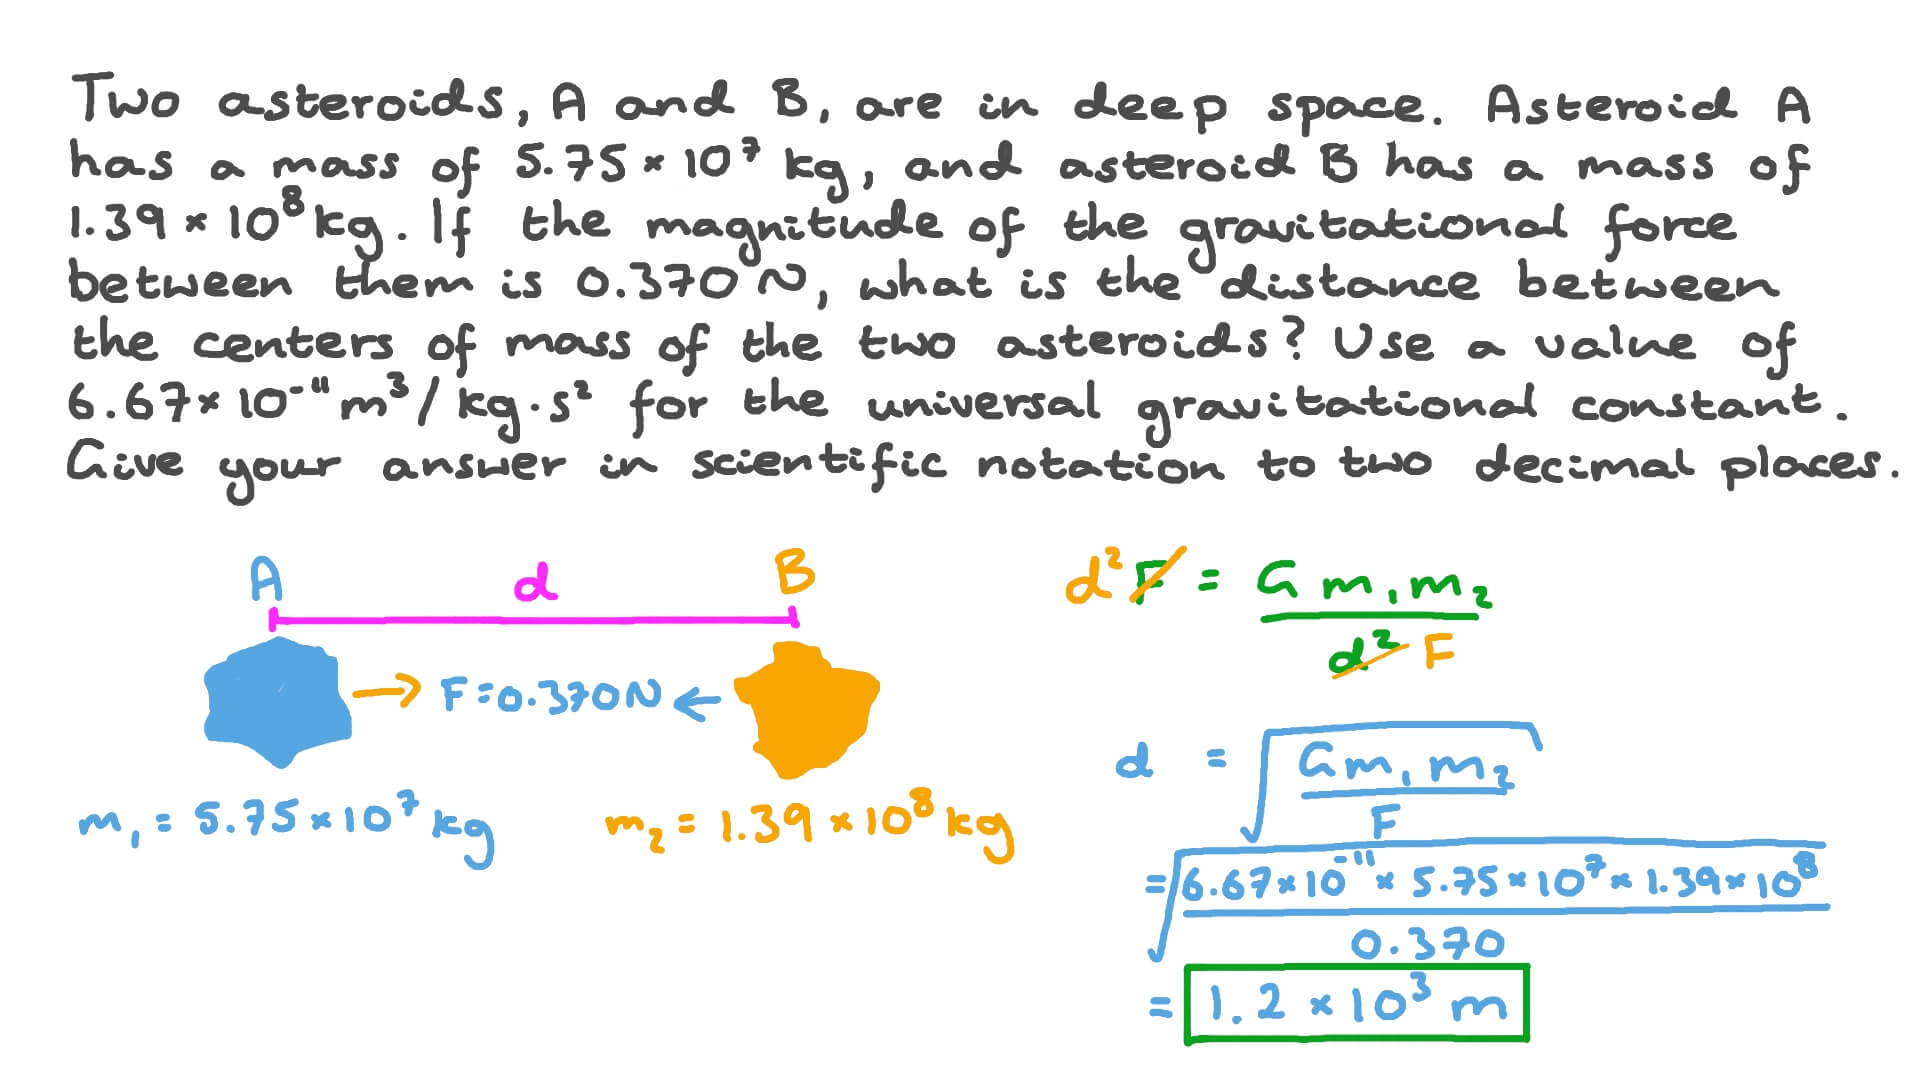 Two asteroids, A and B, are in deep space. Asteroid A
has a mass of 5.75 × 10⁷ kg, and asteroid B has a mass of
1.39 × 10⁸ kg. If the magnitude of the gravitational force
between them is 0.370 N, what is the distance between
the centers of mass of the two asteroids? Use a value of
6.67 × 10⁻¹¹ m³/kg·s² for the universal gravitational constant.
Give your answer in scientific notation to two decimal places.
A
d
B
F = 0.370 N
m₁ = 5.75 × 10⁷ kg
m₂ = 1.39 × 10⁸ kg
d² F = G m₁ m₂
d² F
d = √ G m₁ m₂
F
= √ 6.67 × 10⁻¹¹ × 5.75 × 10⁷ × 1.39 × 10⁸
0.370
= 1.2 × 10³ m